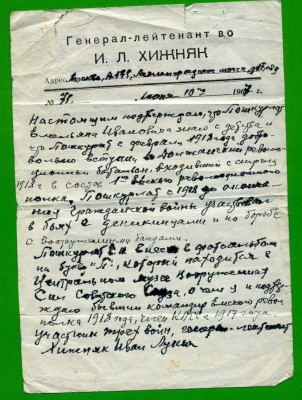 Генерал-лейтенант в/о
И. Л. ХИЖНЯК
Адрес Москва, А-171, Ленинградское шоссе
№ 71. Июня 10го 1967 г.
Настоящим подтверждаю, что Пошкурлат
Емельяна Ивановича знаю с детства и
что Пошкурлат с февраля 1918 года добро-
вольно вступил в револю-
ционный батальон, входивший с
1918 г в состав 1го революционного
полка. Пошкурлат с 1918 до оконча-
ния Гражданской войны участвовал
в боях с деникинцами и по борьбе
с вооруженными бандами.
Пошкурлат Е.И. внесен в фотоальбом
на букву "П", который находится в
Центральном музее Вооруженных
Сил Советского Союза, о чем я и подтвер-
ждаю бывший командир револ.
полка 1918 года, член КПСС с 1917 года
участник трех войн, генерал-лейтенант
Хижняк Иван Лукич